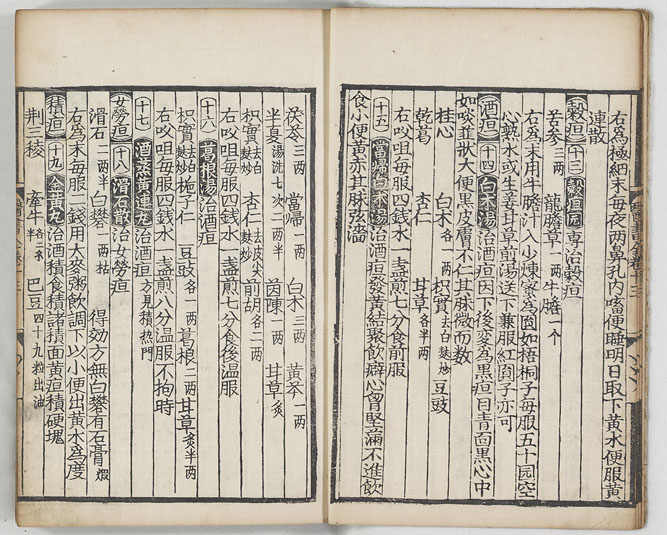 右爲極細末每夜兩鼻孔內㗜便睡明日取下黃水便服黃
連散
穀疸 十三 穀疸圓 專治穀疸
苦參三兩 龍膽草一兩 牛膽一个
右爲末用牛膽汁入少煉蜜爲圓如梧桐子每服五十圓空
心熱水或生姜甘草前湯送下兼服紅圓子亦可
酒疸 十四 白术湯 治酒疸因下後變爲黑疸目青面黑心中
如啖韮狀大便黑皮膚不仁其脉微而數
桂心 白术各一兩 枳實去白麸炒 豆豉
乾葛 甘草各半兩
右㕮咀每服四錢水一盞煎七分食前服
十五 當歸白术湯 治酒疸發黃結聚飲癖心胷堅滿不進飲
食小便黃赤其脉弦濇
茯苓三兩 當歸一兩 白术三兩 黃芩一兩
半夏湯洗七次二兩半 茵陳一兩 甘草炙
枳實去白麸炒 杏仁去皮尖麸炒 前胡各二兩
右㕮咀每服四錢水一盞煎七分食後溫服
十六 葛根湯 治酒疸
枳實去白麸炒 梔子仁 豆豉各一兩 葛根二兩 甘草炙半兩
右㕮咀每服四錢水一盞煎八分溫服不拘時
十七 酒蒸黃連丸 治酒疸方見積熱門
女勞疸 十八 滑石散 治女勞疸
滑石一兩半 白礬一兩枯 得効方無白礬有石膏煅
右爲末每服二錢用大麥粥飲調下以小便出黃水爲度
積疸 十九 金黃丸 治酒積食積諸積面黃疸積硬塊
荆三稜 牽牛各二朱半 巴豆四十九粒出油